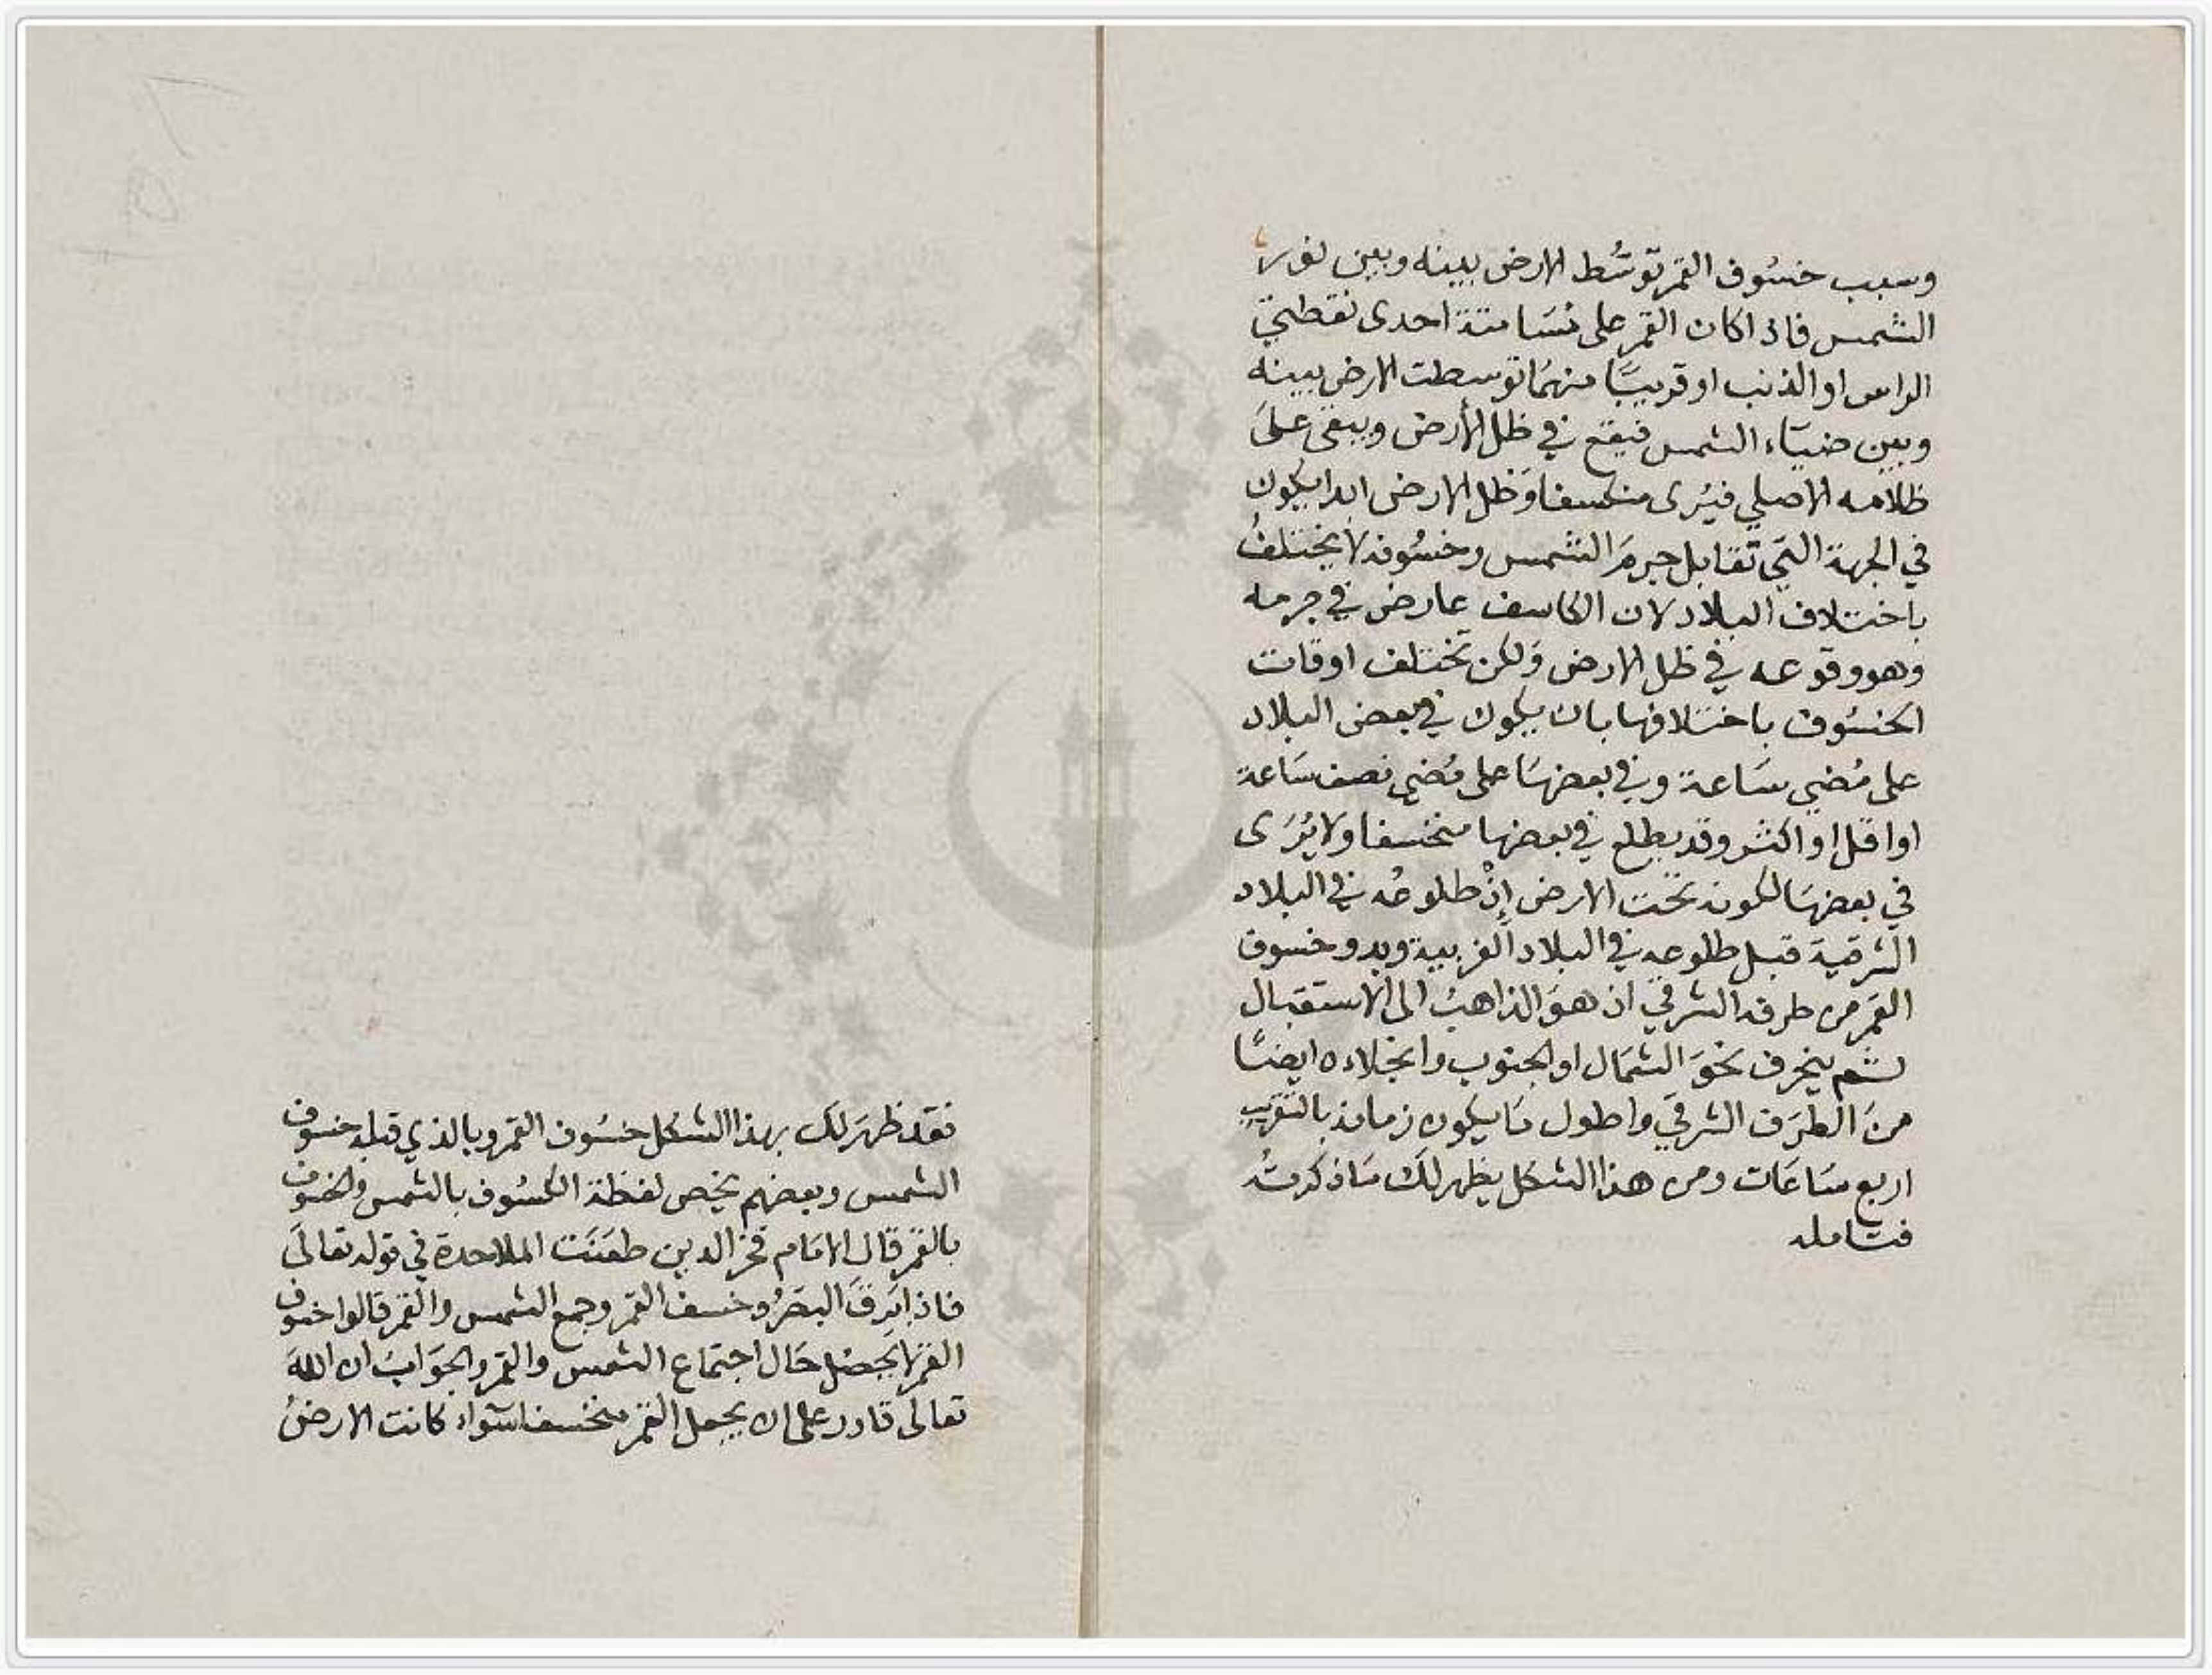 وسبب خسُوف القمر توسُّط الارض بينه وبين نور
الشمس فاذا كان القمر على مُسَامتة احدى نقطتي
الراس او الذنب او قريبًا منهمَا توسطت الارض بينه
وبين ضيَاء الشمس فيقع في ظل الأرض ويبقى علىَ
ظلامه الاصلي فيُرى منكسفا وَظل الارض ابدا يكون
في الجهة التي تقابل جرمَ الشمس وخسُوفه لا يختلفُ
باختلاف البلاد لان الكاسف عارض في جرمه
وَهو وقوعه في ظل الارض وَلكن تختلف اوقات
الخسُوف باختلافها بان يكون في بعض البلاد
على مُضي سَاعة وفي بعضهَا على مُضي نصف سَاعة
او اقل او اكثر وقد يطلع في بعضها منخسفا ولا يُرَى
في بعضهَا لكونه تحت الارض إذْ طلوعُه في البلاد
الشرقية قبل طلوعه في البلاد الغربية ويبدو خسوف
القمَر من طرفه الشرقي اذ هوَ الذاهبُ الى الاستقبال
ثم ينحرف نحوَ الشمَال او الجنوب وانجلاءه ايضًا
منَ الطرَف الشرقي واطول مَا يكون زمانه بالتقريب
اربع سَاعَات ومن هذا الشكل يظهر لكَ مَا ذكرتُه
فتامله
فقد ظهَر لكَ بهذا الشكل خسُوف القمر وبالذي قبله خسوف
الشمس وبعضهم يخص لفظة الكسُوف بالشمس والخسوف
بالقمر قال الامَام فخر الدين طعَنَت الملاحدة في قوله تعالىَ
فاذا بَرِقَ البصَرُ وخسف القمر وجمع الشمس والقمر قالوا خسوف
القمر لا يحصُل حَال اجتماع الشمس والقمر والجوَابُ ان اللهَ
تعالى قادر على ان يجعل القمر منخسفا سَواء كانت الارضُ